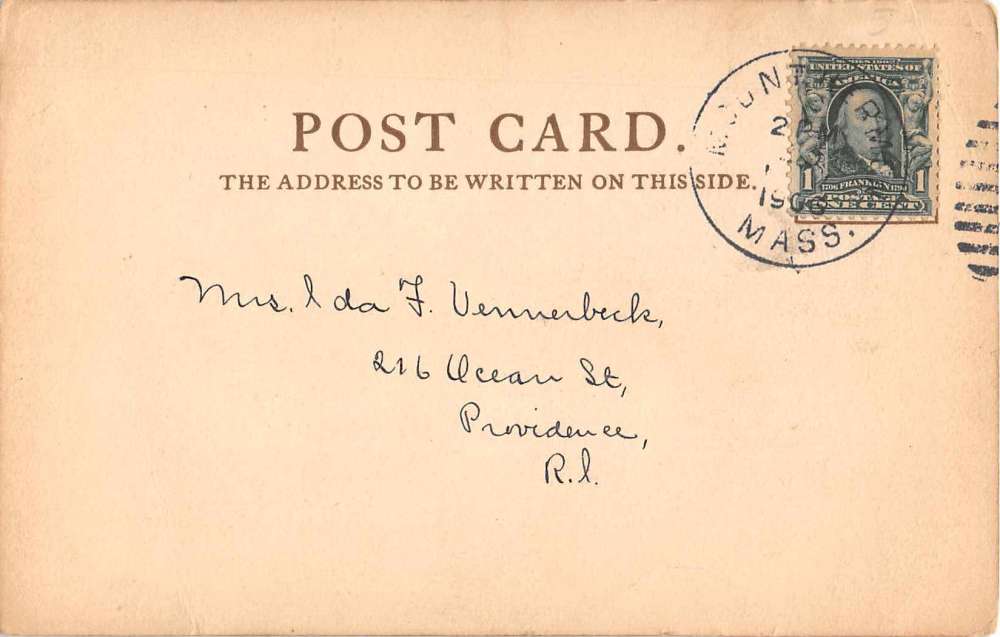 POST CARD.
THE ADDRESS TO BE WRITTEN ON THIS SIDE.
MOUNT HERMON
2
1906
MASS.
SERIES 1902
UNITED STATES OF
AMERICA
1 1706 FRANKLIN 1790 1
POSTAGE
ONE CENT
Mrs. Ida F. Vennerbeck,
216 Ocean St,
Providence,
R.I.
5